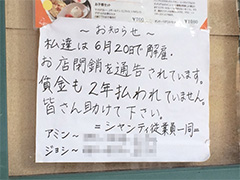 ～お知らせ～
私達は6月20日で解雇、
お店閉鎖を通告されています。
賃金も2年払われていません。
皆さん助けて下さい。
=シャンティ従業員一同=
アミン〜
ジョシ〜